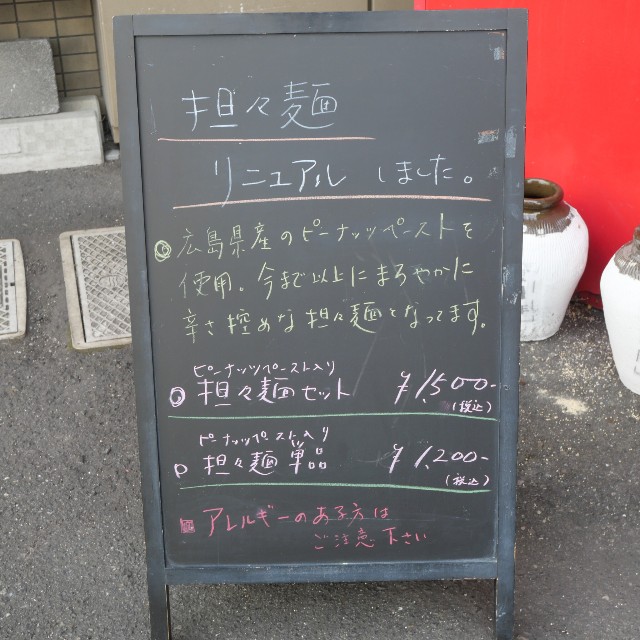 担々麺
リニューアルしました。
◎広島県産のピーナッツペーストを
使用。今まで以上にまろやかに
辛さ控めな担々麺となってます。
ピーナッツペースト入り
担々麺セット ¥1,500-
(税込)
ピーナッツペースト入り
担々麺 単品 ¥1,200-
(税込)
アレルギーのある方は
ご注意下さい